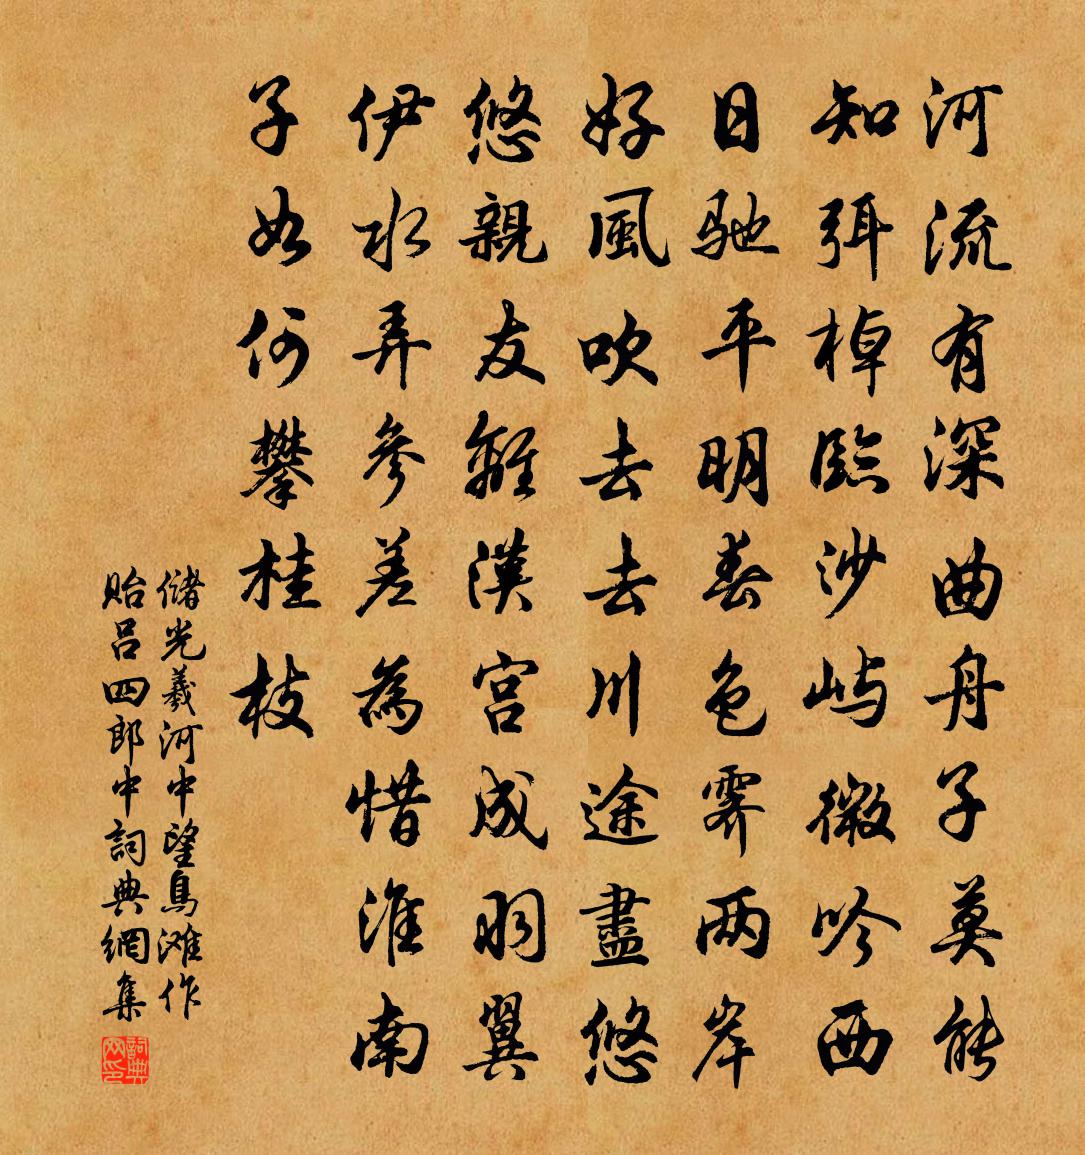 河流有深曲舟子莫能
知弭棹臨沙嶼微吟西
日馳平明春色霽两岸
好風吹去去川途盡悠
悠親友離漢宮成羽翼
伊水弄參差為惜淮南
子如何攀桂枝
儲光羲河中望鳥滩作
貽呂四郎中詞典網集
詞典
网印